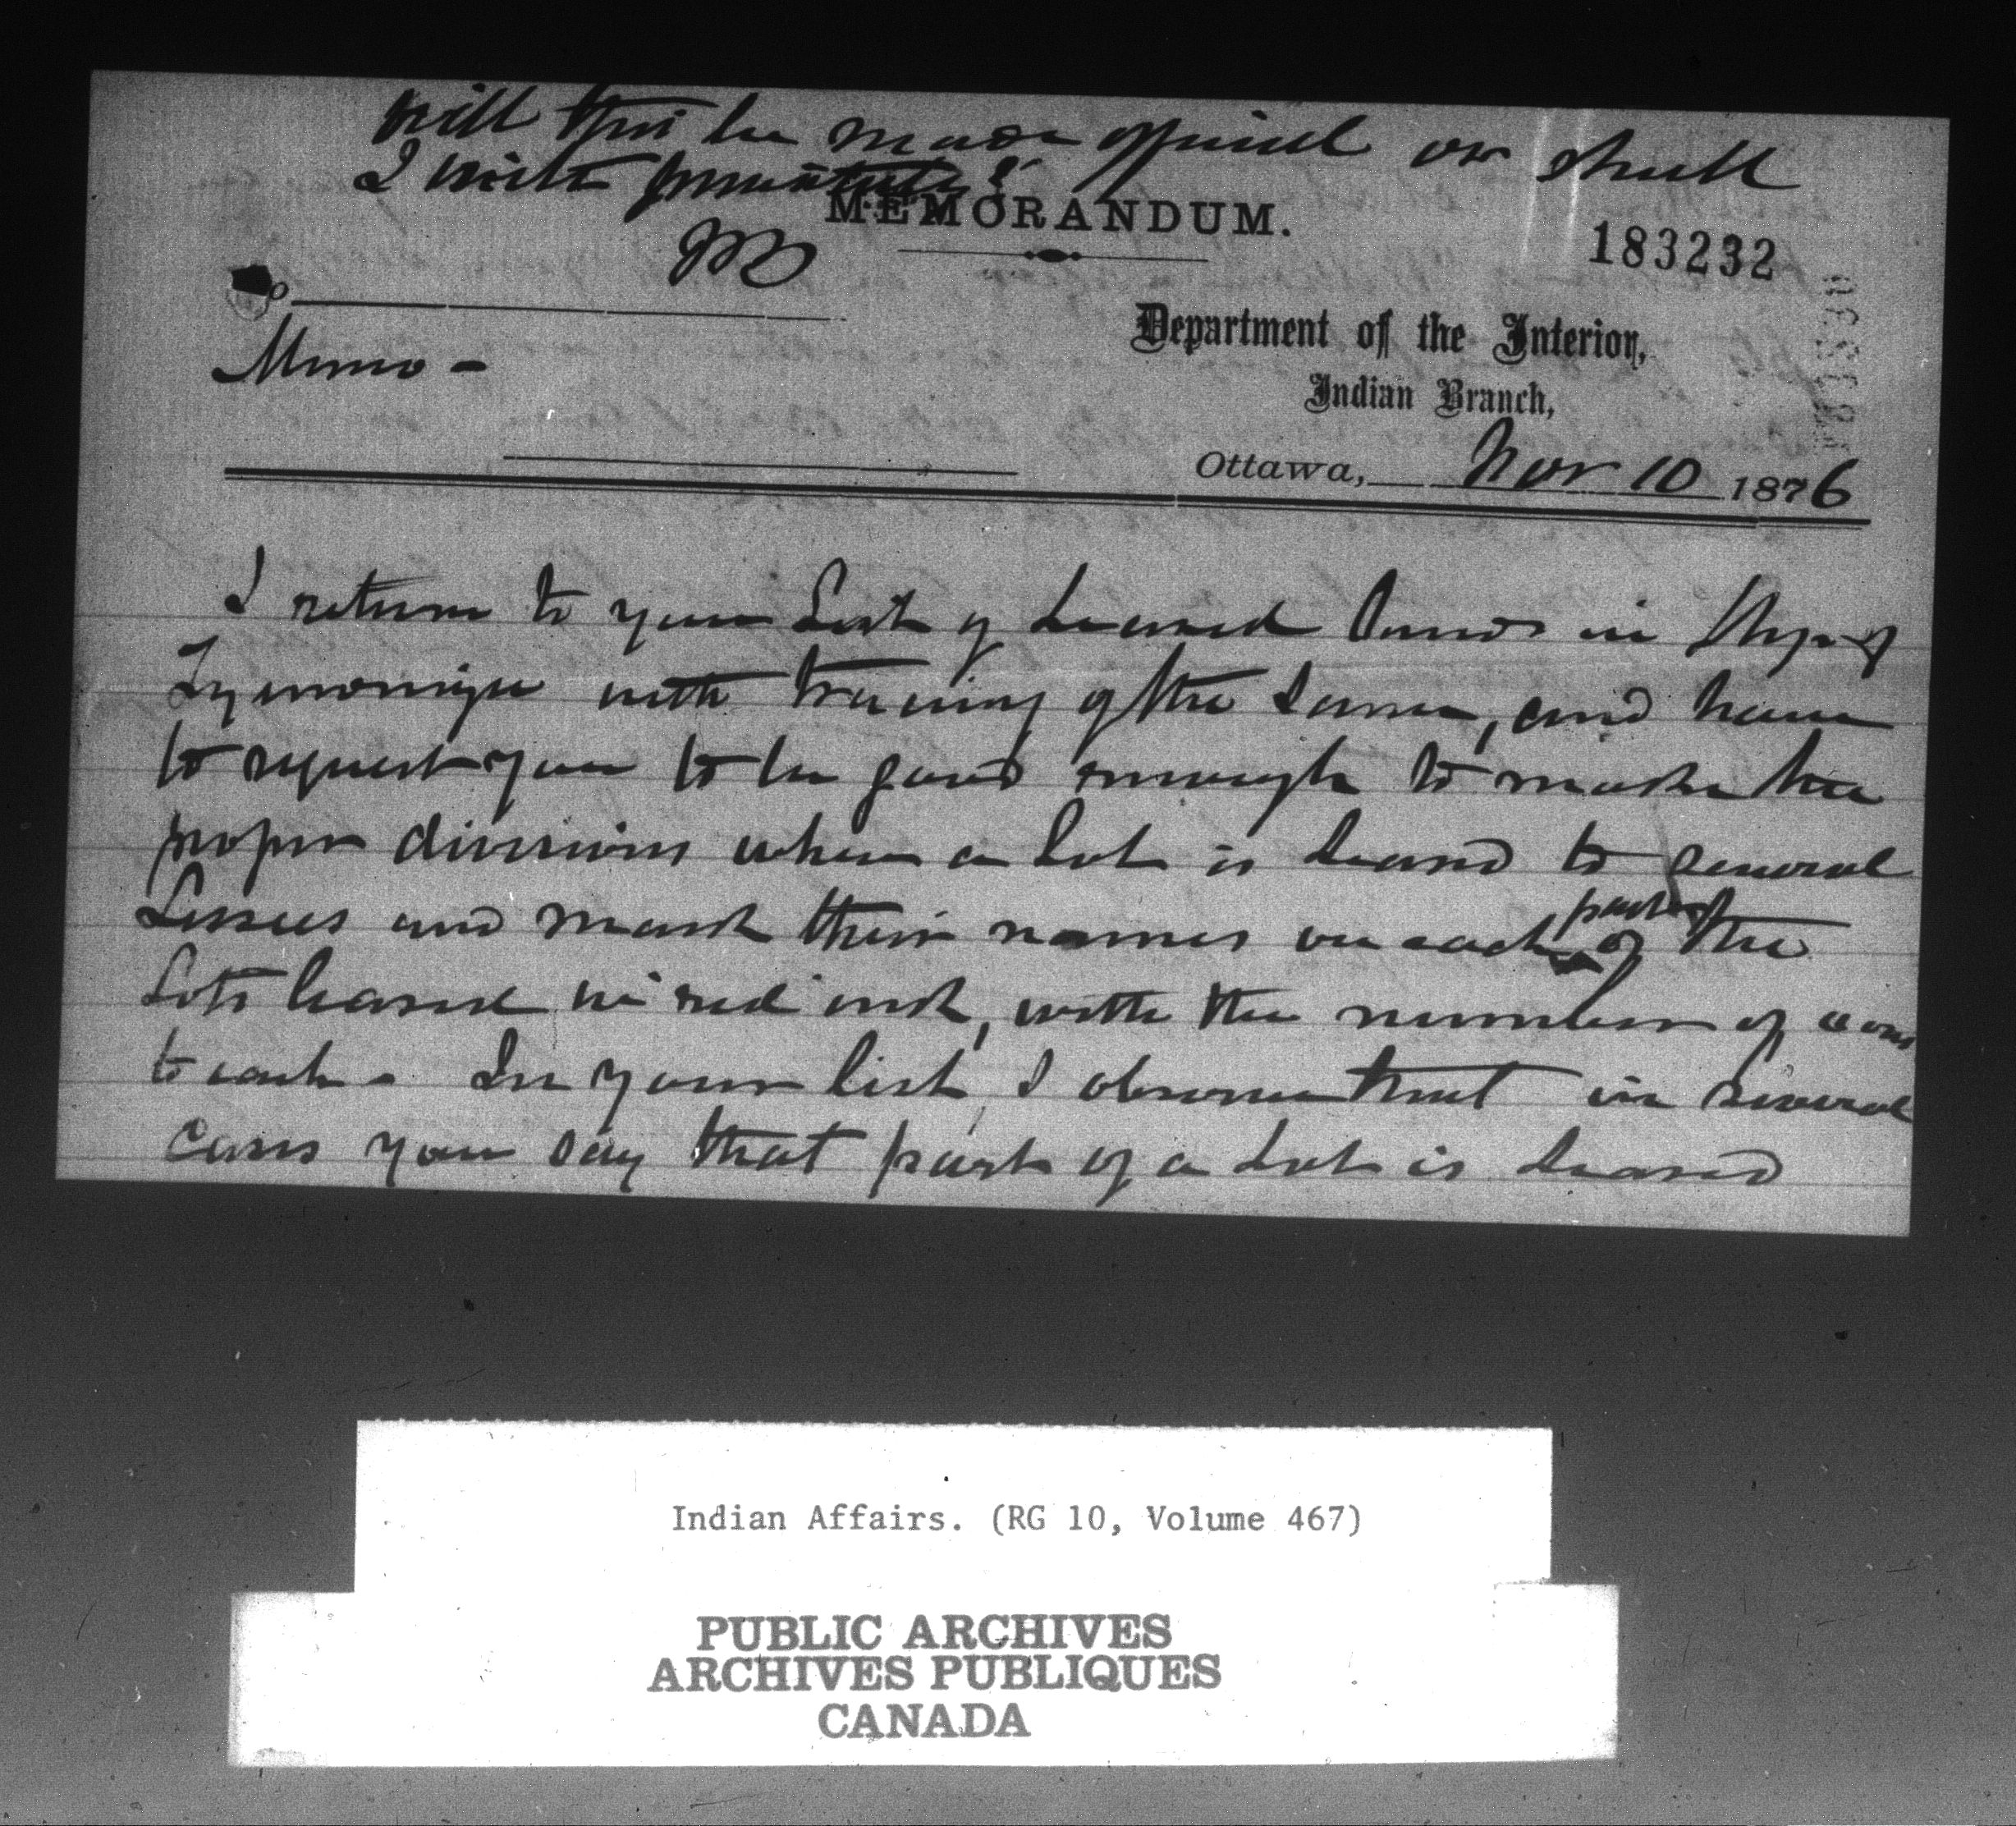 Will this be made official or shall
I write privately?
MEMORANDUM.
183232
Memo -
Department of the Interior,
Indian Branch,
Ottawa, Nov 10 1876
I return to you List of Leased Lands in Shp of
Tyendinaga with tracing of the same, and have
to request you to be good enough to make the
proper divisions when a Lot is Leased to several
Lessees and mark their names on each part of the
Lots leased in red ink, with the number of acres
to each - In your list I observe that in several
cases you say that part of a Lot is Leased
Indian Affairs. (RG 10, Volume 467)
PUBLIC ARCHIVES
ARCHIVES PUBLIQUES
CANADA